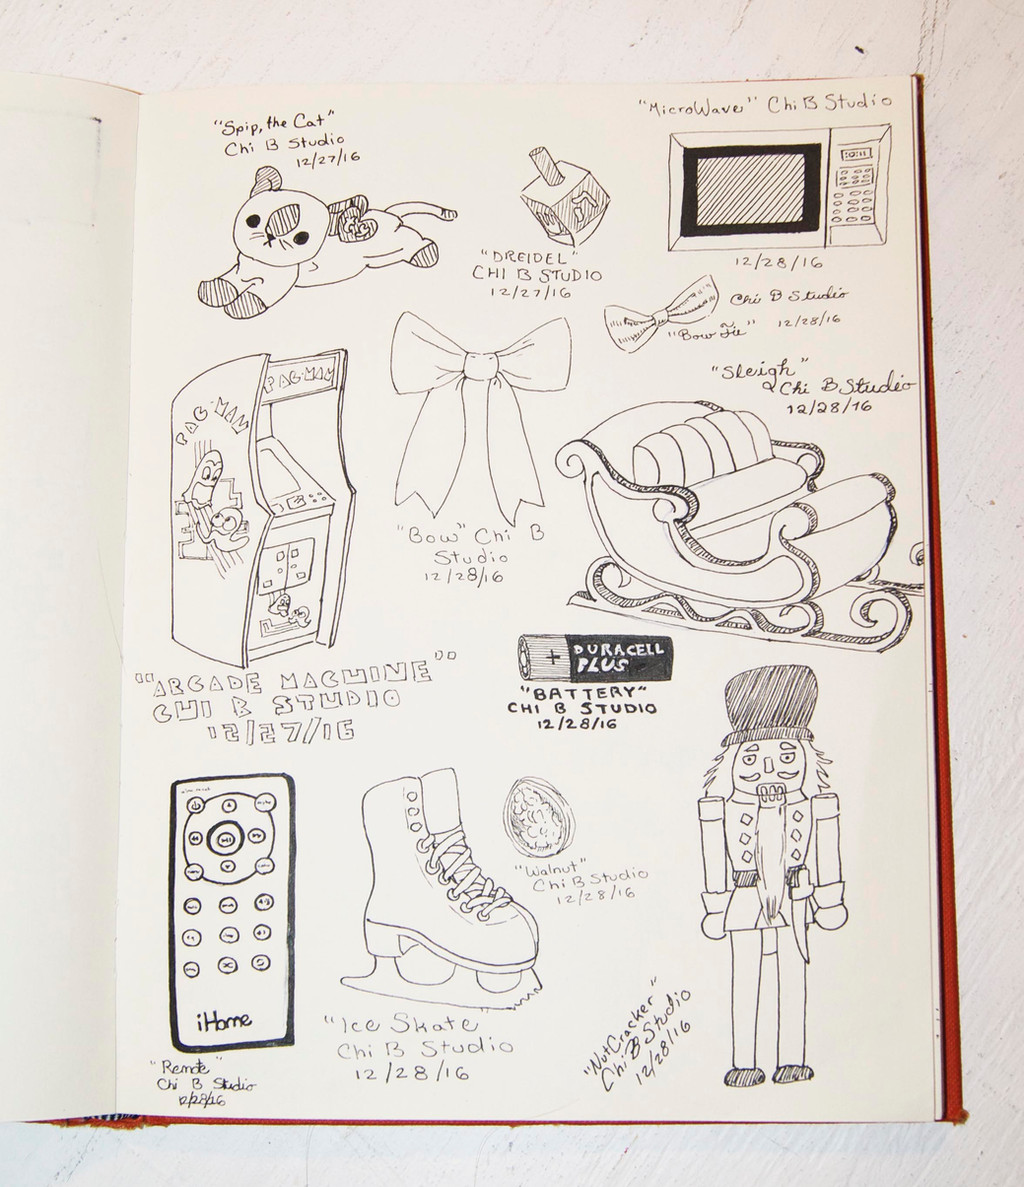 "Spip, the Cat"
Chi B Studio
12/27/16
"DREIDEL"
CHI B STUDIO
12/27/16
"MicroWave" Chi B Studio
12/28/16
Chi B Studio
"Bow Tie" 12/28/16
"Sleigh"
Chi B Studio
12/28/16
PAC-MAN
PAC-MAN
"Bow" Chi B
Studio
12/28/16
"ARCADE MACHINE"
CHI B STUDIO
12/27/16
+ DURACELL
PLUS
"BATTERY"
CHI B STUDIO
12/28/16
iHome
"Remote"
Chi B Studio
12/28/16
"Ice Skate"
Chi B Studio
12/28/16
"Walnut"
Chi B Studio
12/28/16
"NutCracker"
Chi B Studio
12/28/16